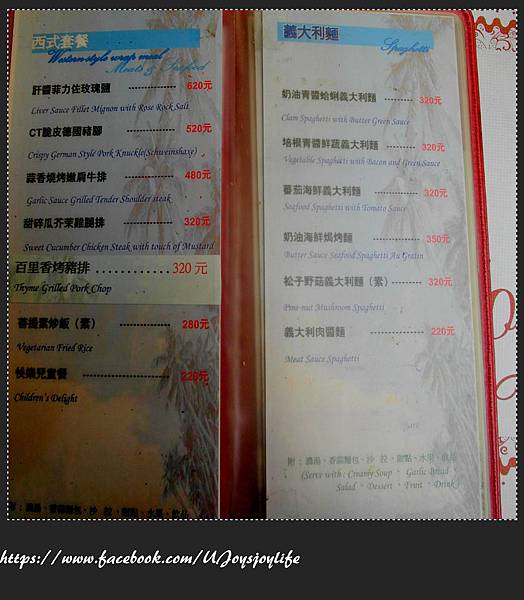 西式套餐
Western-style wrap meal
Meats & Seafood
肝醬菲力佐玫瑰鹽 ------------ 620元
Liver Sauce Fillet Mignon with Rose Rock Salt
CT脆皮德國豬腳 ------------ 520元
Crispy German Style Pork Knuckle(Schweinshaxe)
蒜香燒烤嫩肩牛排 ------------ 480元
Garlic Sauce Grilled Tender Shoulder steak
甜碎瓜芥茉雞腿排 ------------ 320元
Sweet Cucumber Chicken Steak with touch of Mustard
百里香烤豬排 ............ 320 元
Thyme Grilled Pork Chop
菩提素炒飯（素） ------------ 280元
Vegetarian Fried Rice
快樂兒童餐 ------------ 220元
Children's Delight
附：濃湯、香蒜麵包、沙 拉、甜點、水果、飲品
義大利麵
Spaghetti
奶油青醬蛤蜊義大利麵 ------- 320元
Clam Spaghetti with Butter Green Sauce
培根青醬鮮蔬義大利麵 ------- 320元
Vegetable Spaghetti with Bacon and Green Sauce
蕃茄海鮮義大利麵 ------- 320元
Seafood Spaghetti with Tomato Sauce
奶油海鮮焗烤麵 ------------ 350元
Butter Sauce Seafood Spaghetti Au Gratin
松子野菇義大利麵（素）------- 320元
Pine-nut Mushroom Spaghetti
義大利肉醬麵 ------------ 220元
Meat Sauce Spaghetti
附：濃湯、香蒜麵包、沙 拉、甜點、水果、飲品
(Serve with : Creamy Soup 、 Garlic Bread
Salad 、 Dessert 、 Fruit 、 Drink)
https://www.facebook.com/UJoysjoylife